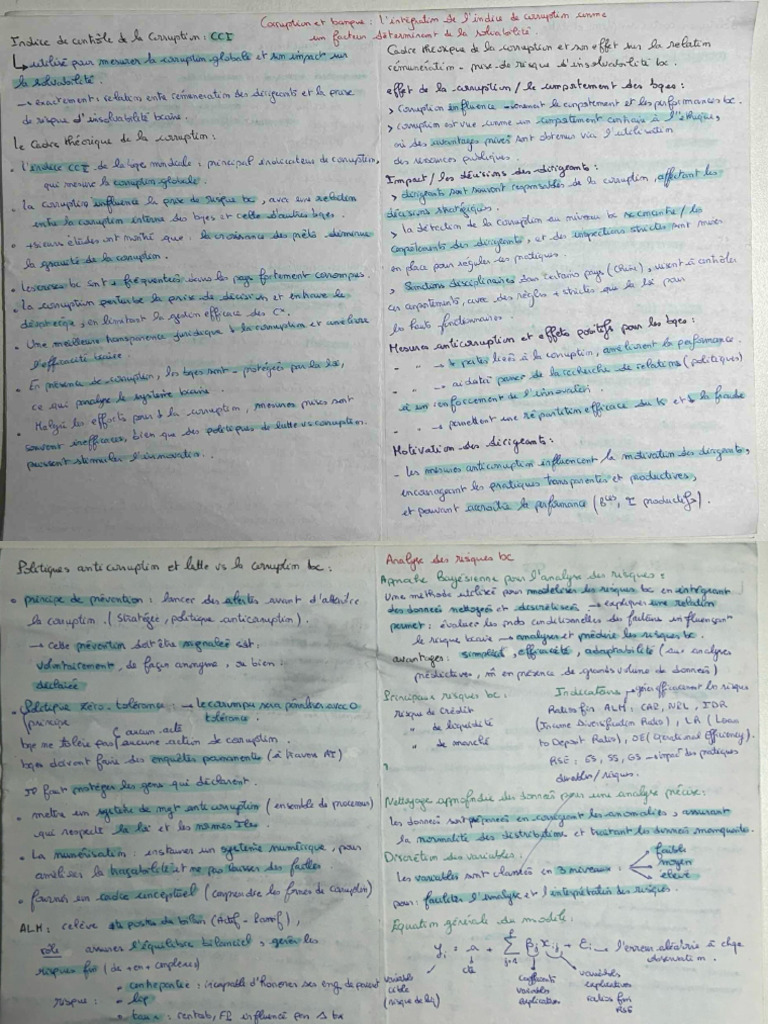 Corruption et banque : l'intégration de l'indice de corruption comme
un facteur déterminant de la solvabilité.
Indice de contrôle de la Corruption : CCI
↳ utilisé pour mesurer la corruption globale et son impact sur
la solvabilité.
→ exactement : relation entre rémunération des dirigeants et la prise
de risque d'insolvabilité bcaire.
Le Cadre théorique de la corruption :
• l'indice CCI de la bque mondiale : principal indicateur de corruption,
qui mesure la corruption globale.
• La corruption influence la prise de risque bc, avec une relation
entre la corruption interne des bques et celle d'autres bques.
• +sieurs études ont montré que : la croissance des prêts diminue
la gravité de la corruption.
• les crises bc sont + fréquentes dans les pays fortement corrompus.
• La corruption perturbe la prise de décision et entrave le
, en limitant la gestion efficace des
• Une meilleure transparence juridique ↓ la corruption et améliore
l'efficacité bcaire.
• En présence de corruption, les bques sont - protégées par la loi,
ce qui paralyse le système bcaire.
• Malgré les efforts pour ↓ la corruption, mesures prises sont
souvent inefficaces, bien que des politiques de lutte vs corruption
puissent stimuler l'innovation.
Cadre théorique de la corruption et son effet sur la relation
rémunération - prise de risque d'insolvabilité bc.
effet de la corruption / le comportement des bques :
> Corruption influence le comportement et les performances bc.
> corruption est vue comme un comportement contraire à l'éthique,
où des avantages privés sont obtenus via l'utilisation
des ressources publiques.
Impact / les décisions des dirigeants :
> dirigeants sont souvent responsables de la corruption, affectant les
décisions stratégiques.
> la détection de la corruption au niveau bc se concentre / les
comportements des dirigeants, et des inspections strictes sont mises
en place pour réguler les pratiques.
> Sanctions disciplinaires dans certains pays (Chine), visent à contrôler
ces comportements, avec des règles + strictes que la loi pour
les hauts fonctionnaires.
Mesures anticorruption et effets positifs pour les bques :
- " " → ↓ pertes liées à la corruption, améliorent la performance.
- " " → aident à passer de la recherche de relations (politiques)
à un renforcement de l'innovation.
- " " → permettent une répartition efficace du K et ↓ la fraude
Motivation des dirigeants :
- les mesures anticorruption influencent la motivation des dirigeants,
encourageant les pratiques transparentes et productives,
et pouvant accroître la performance
Politiques anticorruption et lutte vs la corruption bc :
• principe de prévention : lancer des alertes avant d'atteindre
la corruption. (Stratégie, politique anticorruption).
→ cette prévention doit être signalée soit :
volontairement, de façon anonyme, ou bien
déclarée
• Politique zéro-tolérance : → le corrompu sera pénalisé avec 0
principe tolérance.
aucun acte
bque ne tolère pas aucune action de corruption.
bques doivent faire des enquêtes permanentes (à travers AI)
Il faut protéger les gens qui déclarent.
• mettre un système de mgt anticorruption (ensemble de processus)
qui respecte la loi et les normes
• La numérisation : instaurer un système numérique, pour
améliorer la traçabilité et ne pas laisser des failles
• fournir un cadre conceptuel (comprendre les formes de corruption)
ALM : relève postes du bilan (Actif - Passif),
rôle assurer l'équilibre bilanciel, gérer les
risques fin (de + en + complexes)
• contrepartie : incapable d'honorer ses eng. de paiement
risque : • liq
• taux : rentab,
Analyse des risques bc
Approche Bayésienne pour l'analyse des risques :
Une méthode utilisée pour modéliser les risques bc en intégrant
des données nettoyées et discrétisées → expliquer une relation
permet : évaluer les probas conditionnelles des facteurs influençant
le risque bcaire → analyser et prédire les risques bc.
avantages : simplicité, efficacité, adaptabilité (aux analyses
prédictives, m̂ en présence de grands volume de données)
Principaux risques bc : Indicateurs → gérer efficacement les risques
risque de Crédit Ratios fin, ALM : CAR, NPL, IDR
" de liquidité (Income Diversification Ratio), LR (Loan
" de marché to Deposit Ratio), OE (Operational Efficiency).
RSE : ES, SS, GS → impact des pratiques
durables / risques.
Nettoyage approfondie des données pour une analyse précise :
Les données sont préparées en corrigeant les anomalies, assurant
la normalité des distributions et traitant les données manquantes.
Discrétion des variables :
Les variables sont classées en 3 niveaux : faible
moyen
élevé
pour : faciliter l'analyse et l'interprétation des risques.
Equation générale du modèle :
yᵢ = a + Σ βⱼ xᵢⱼ + εᵢ → l'erreur aléatoire à chque
observation.
variable cte coefficients variables
cible variables explicatives
(risque de liq) explicatives ratios fin
RSE